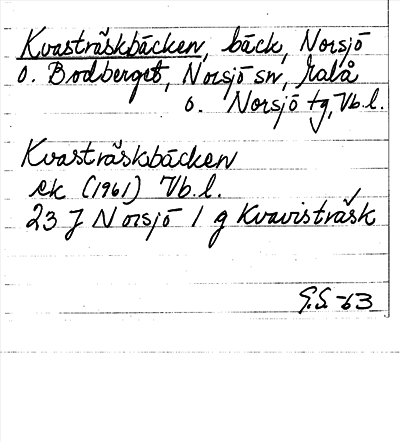 Kvasträskbäcken, bäck, Norsjö
o. Bodberget, Norsjö sn, Malå
o. Norsjö tg, Vb.l.
Kvasträskbäcken
ek (1961) Vb.l.
23 J Norsjö 1 g Kvavisträsk
G.S. -63